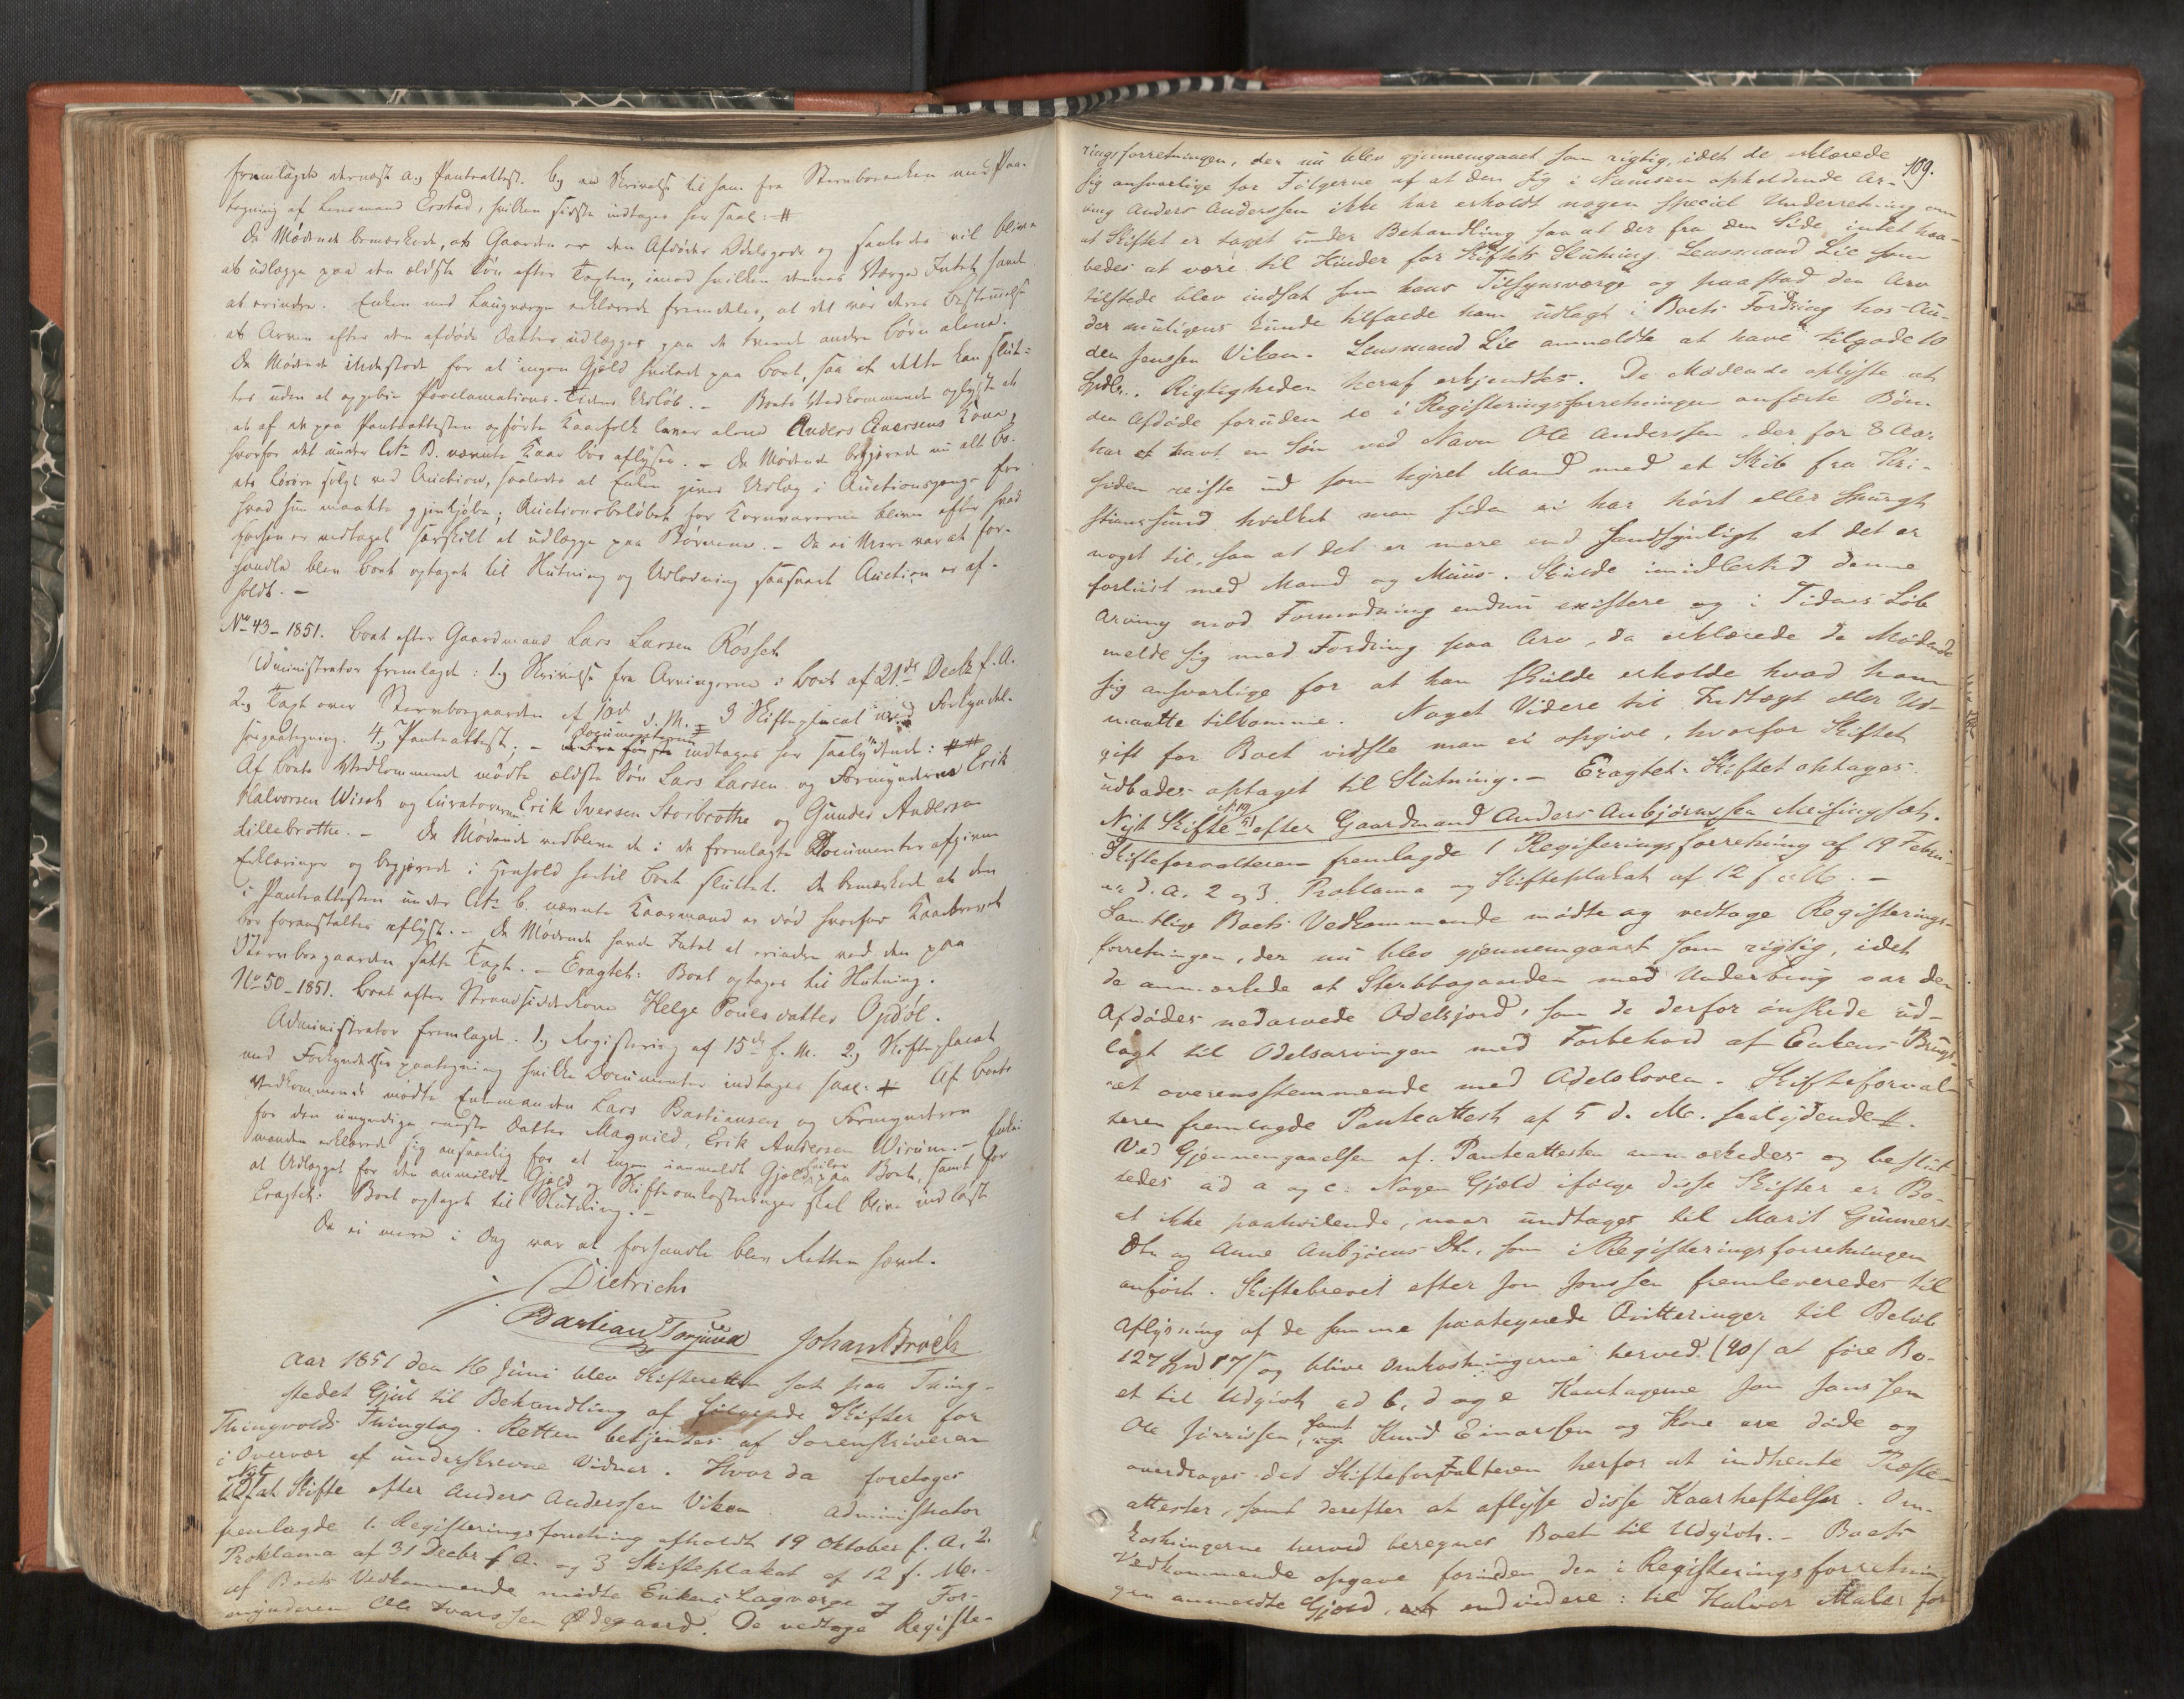 fremlagde dernæst a, Panteattest. b, en Skrivelse til ham fra Stervboenken med Paa-
tegning af Lensmand Erstad, hvilken sidste indtages her saal: #
De Mødende bemærkede, at Gaarden er den Afdødes Odelsgods og saaledes vil blive
at udlægge paa den ældste Søn efter Taxten, imod hvilken dennes Værge Intet havde
at erindre. Enken med Laugværge erklærede fremdeles, at det var deres Bestemmelse
at Arven efter den afdøde Datter udlægges paa de tvende andre Børn alene.
De Mødende indestode for at ingen Gjæld hvilede paa Boet, saa at dette kan slut-
tes uden at oppebie Proclamations-Tidens Udløb. - Boets Vedkommende oplyste at
at af de paa Pantattesten opførte Kaarfolk lever alene Anders Iversens Kone,
hvorfor det under Litr B. nævnte Kaar bør aflyses. - De Mødende begjerede nu alt Bo-
ets Løsøre solgt ved Auction, saaledes at Enken gives Udlæg i Auctionspenge for
hvad hun maatte gjenkjøbe; Auctionsbeløbet for Kornvarerne bliver efter hvad
forhen er vedtaget særskilt at udlægge paa Børnene. - Da ei Mere var at for-
handle blev Boet optaget til Slutning og Udlodning saasnart Auction er af-
holdt. -
No 43 - 1851. Boet efter Gaardmand Lars Larsen Røsseh
Administrator fremlagde: 1, Skrivelse fra Arvingerne i Boet af 21de Decb. f. A.
2, Taxt over Stervbogaarden af 10d d. M. 3 Skifteplacat med Forkyndel-
sespaategning. 4, Pantattest; - Documenterne indtages her saalydende: # #
Af Boets Vedkommende mødte ældste Søn Lars Larsen og Formynderne Erik
Halvorsen Wiseh og Curatoren Erik Iversen Storbrøthe og Gunder Andersen
Lillebrøthe. - De Mødende vedbleve de i de fremlagte Documenter afgivne
Erklæringer og begjerede i Henhold hertil Boet sluttet. De bemærkede at den
i Pantattesten under Litr b. nævnte Kaarmand er død hvorfor Kaarbrevet
bør foranstaltes aflyst. - De Mødende havde Intet at erindre ved den paa
Stervbogaarden satte Taxt. - Eragtet: Boet optages til Slutning.
No 50 - 1851. Boet efter Strandsidderkone Helge Pouelsdatter Opdøl.
Administrator fremlagde. 1, Registrering af 15de f. M. 2, Skifteplacat
med Forkyndelsespaategning hvilke Documenter indtages saal: # Af Boets
Vedkommende mødte Enkemanden Lars Bastiansen og Formynderen
for den umyndige eneste Datter Magnild, Erik Andersen Wirum. - Enke-
manden erklærede sig ansvarlig for at Ingen uanmeldt Gjæld hviler paa Boet, samt for
at Udlægget for den anmeldte Gjæld og Skifteomkostninger skal blive indløst
Eragtet: Boet optaget til Slutning. -
Da ei mere i Dag var at forhandle blev Retten hævet.
Dietrichs
Bastian Torjused Johan Broch
Aar 1851 den 16 Juni blev Skifteretten sat paa Thing-
stedet Gjul til Behandling af følgende Skifter for
Thingvolds Thinglag. Retten betjentes af Sorenskriveren
i Overvær af underskrevne Vidner. Hvor da foretages
Nyt
Skifte efter Anders Anderssen Viken Administrator
fremlagde 1. Registeringsforretning afholdt 19 Oktober f. A. 2.
Proklama af 31 Decbr f A. og 3 Skifteplakat af 12 f. M. -
af Boets Vedkommende mødte Enkens Lagværge og For-
mynderen Ole Ivarssen Ødegaard. De vedtoge Registe-
109.
ringsforretningen, der nu blev gjennemgaaet som rigtig, idet de erklærede
sig ansvarlige for Følgerne af at den sig i Namsen opholdende Ar-
ving Anders Anderssen ikke har erholdt nogen special Underretning om
at Skiftet er taget under Behandling saa at der fra den Side intet haa-
bedes at være til Hinder for Skiftets Slutning. Lensmand Lie som
tilstede blev indsat som hans Tilsynsværge og paastod den Arv
der muligens kunde tilfalde ham udlagt i Boets Fordring hos An-
den Jenssen Viken. Lensmand Lie anmeldte at have tilgode 10
Spdlr. Rigtigheden heraf erkjendtes. De Mødende oplyste at
den Afdøde foruden de i Registeringsforretningen anførte Børn
har et havt en Søn ved Navn Ole Anderssen, der for 8 Aar
siden reiste ud som hyret Mand med et Skib fra Kri-
stiansund hvilket man siden ei har hørt eller spurgt
noget til, saa at det er mere end sandsynligt at det er
forliist med Mand og Muus. Skulde imidlertid denne
Arving mod Formodning endnu existere og i Tidens Løb
melde sig med Fordring paa Arv, da erklærede de Mødende
sig ansvarlige for at han skulde erholde hvad ham
maatte tilkomme. Noget Videre til Indtægt eller Ud-
gift for Boet vidste man ei opgive, hvorfor Skiftet
udbades optaget til Slutning. - Eragtet: Skiftet optages.
Nyt Skifte efter Gaardmand Anders Anbjørnssen Meisingset.
Skifteforvalteren fremlagde 1 Registeringsforretning af 19 Febru-
ar d. A. 2 og 3. Proklama og Skifteplakat af 12 f. M. -
Samtlige Boets Vedkommende mødte og vedtoge Registerings-
forretningen, der nu blev gjennemgaaet som rigtig, idet
de anmærkede at Sterbbogaarden med Underbrug var den
Afdødes nedarvede Odelsjord, som de derfor ønskede ud-
lagt til Odelsarvingen med Forbehold af Enkens Brugs-
ret overensstemmende med Odelsloven. Skifteforval-
teren fremlagde Panteattest af 5 d. M. saalydende #.
Ved Gjennemgaaelsen af Panteattesten anmærkedes og beslut-
tedes ad a og c: Nogen Gjæld ifølge disse Skifter er Bo-
et ikke paahvilende, naar undtages til Marit Gunners-
Dtr og Anne Anbjørns Dtr, som i Registeringsforretningen
anført. Skiftebrevet efter Jon Jonssen fremleveredes til
Aflysning af de samme paategnede Qvitteringer til Beløb
127 Spd 87 s og blive Omkostningerne herved (90) at føre Bo-
et til Udgivt ad b, d og e Kaartagerne Jon Jonssen
Ole Jørrissen, samt Knud Einarssen og Kone ere døde og
overdroges det Skifteforvalteren herfor at indhente Præste-
attester, samt derefter at aflyse disse Kaarheftelser. Om-
kostningerne herved beregnes Boet til Udgivt. - Boets
Vedkommende opgave foruden den i Registeringsforretnin-
gen anmeldte Gjæld, endvidere: til Halvor Maler for